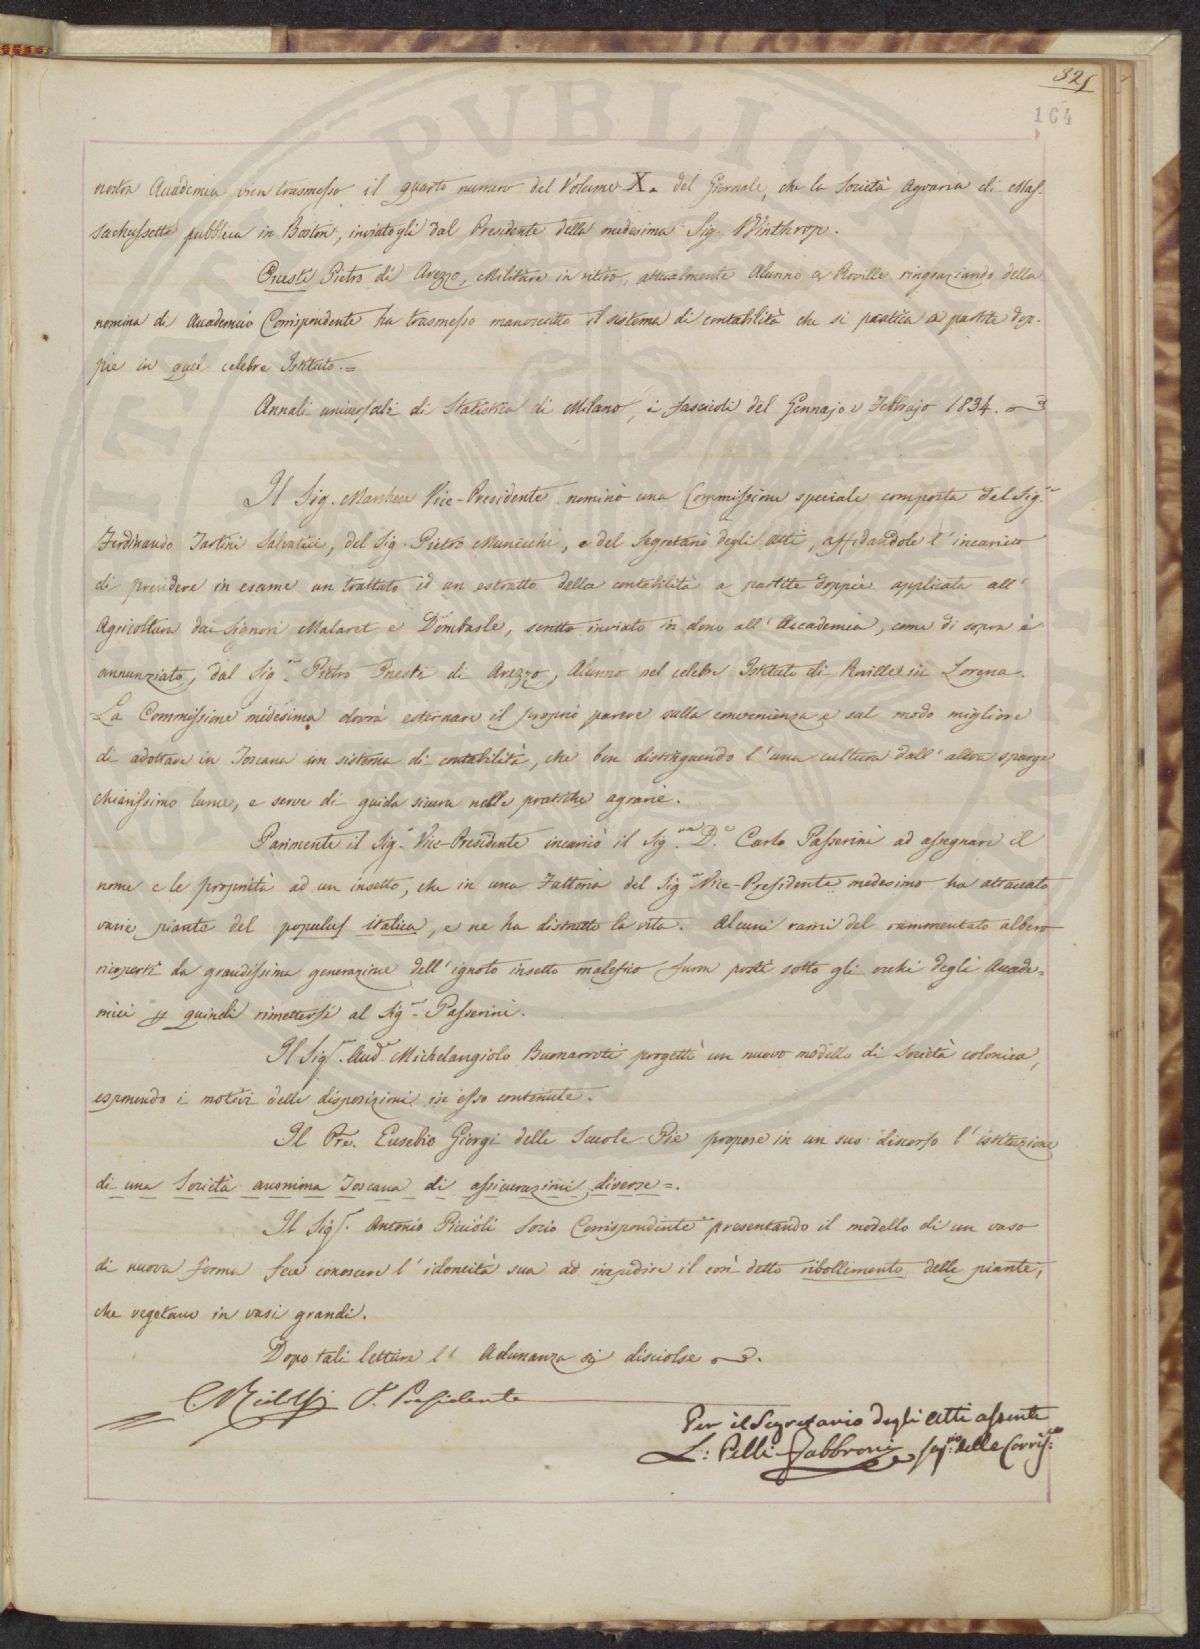 321
164
nostra Accademia vien trasmesso il quarto numero del Volume X. del Giornale, che la Società Agraria di Mas-
sachussetts pubblica in Boston, inviatogli dal Presidente della medesima Sig. Winthrop.
Onesti Pietro di Arezzo, Militare in ritiro, attualmente Alunno a Roville ringraziando della
nomina di Accademico Corrispondente ha trasmesso manoscritto il sistema di contabilità che si pratica a partite dop-
pie in quel celebre Istituto.=
Annali universali di Statistica di Milano, i fascicoli del Gennajo e Febbrajo 1834.
Il Sig. Marchese Vice-Presidente nominò una Commissione speciale composta del Sig.r
Ferdinando Tartini Salvatici, del Sig. Pietro Municchi, e del Segretario degli Atti, affidandole l'incarico
di prendere in esame un trattato ed un estratto della contabilità a partite doppie applicata all'
Agricoltura dai Signori Malaret e Dombasle, scritto inviato in dono all'Accademia, come di sopra è
annunziato, dal Sig.r Pietro Onesti di Arezzo, Alunno nel celebre Istituto di Roville in Lorena.
La Commissione medesima dovrà esternare il proprio parere sulla convenienza e sul modo migliore
di adottare in Toscana un sistema di contabilità, che ben distinguendo l'una cultura dall'altra sparge
chiarissimo lume, e serve di guida sicura nelle pratiche agrarie.
Parimente il Sig.r Vice-Presidente incaricò il Sig. D.r Carlo Passerini ad assegnare il
nome e le proprietà ad un insetto, che in una Fattoria del Sig.r Vice-Presidente medesimo ha attaccato
varie piante del populus italica, e ne ha distrutto la vita. Alcuni rami del rammentato albero
ricoperti da grandissima generazione dell'ignoto insetto malefico furon posti sotto gli occhi degli Accade=
mici p quindi rimettersi al Sig.r Passerini.
Il Sig.r Aud.r Michelangiolo Buonarroti progettò un nuovo modello di Società colonica,
esponendo i motivi delle disposizioni in esso contenute.
Il Pre. Eusebio Giorgi delle Scuole Pie propose in un suo discorso l'istituzione
di una Società anonima Toscana di assicurazioni diverse=.
Il Sig.r Antonio Piccioli Socio Corrispondente presentando il modello di un vaso
di nuova forma fece conoscere l'idoneità sua ad impedire il così detto ribollimento delle piante,
che vegetano in vasi grandi.
Dopo tali letture l'Adunanza si disciolse.
C. Ridolfi V. Presidente
Per il Segretario degli Atti assente
L: Pelli Fabbroni Seg.rio delle Corris.ze